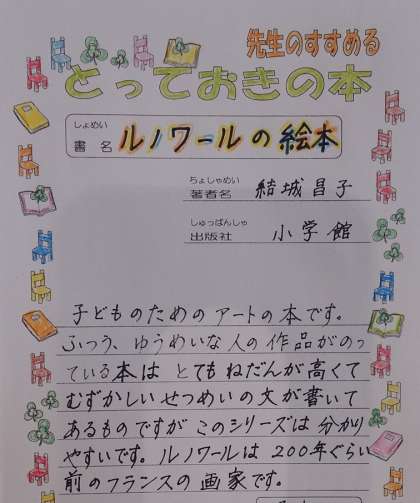 先生のすすめる
とっておきの本
しょめい
書名 ルノワールの絵本
ちょしゃめい
著者名 結城昌子
しゅっぱんしゃ
出版社 小学館
子どものためのアートの本です。
ふつう、ゆうめいな人の作品がのっ
ている本は とてもねだんが高くて
むずかしいせつめいの文が書いて
あるものですが このシリーズは 分かり
やすいです。ルノワールは 200年ぐらい
前のフランスの画家です。